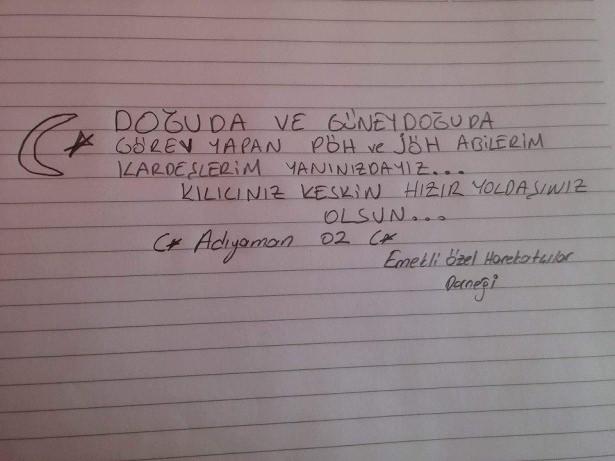 DOĞUDA VE GÜNEYDOĞUDA
GÖREV YAPAN PÖH ve JÖH ABİLERİM
KARDEŞLERİM YANINIZDAYIZ...
KILICINIZ KESKİN HIZIR YOLDAŞINIZ
OLSUN...
Adıyaman 02
Emekli Özel Harekatcılar
Derneği